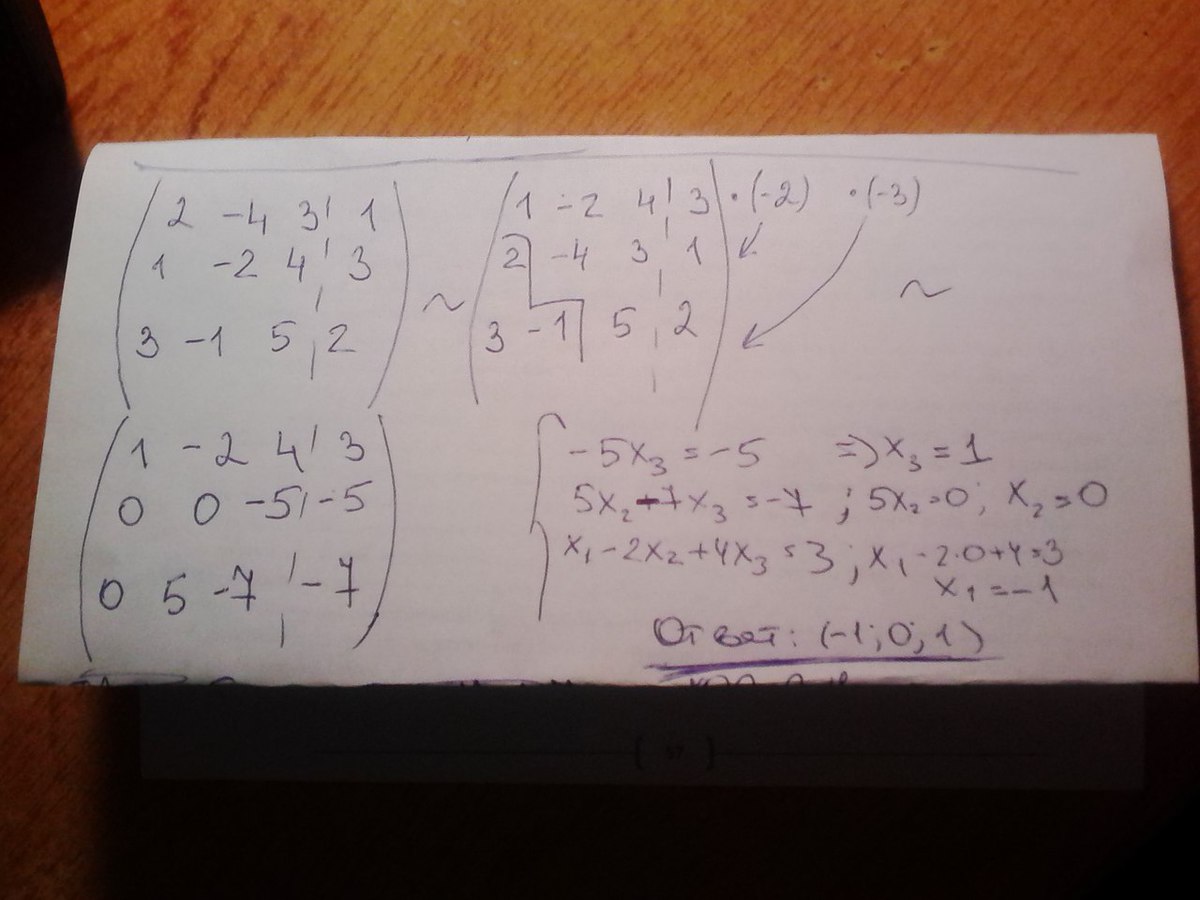 2 -4 3 | 1
1 -2 4 | 3
3 -1 5 | 2
~
1 -2 4 | 3 ·(-2) ·(-3)
2 -4 3 | 1
3 -1 5 | 2
~
1 -2 4 | 3
0 0 -5 | -5
0 5 -7 | -7
-5x₃ = -5 => x₃ = 1
5x₂ - 7x₃ = -7 ; 5x₂ = 0; x₂ = 0
x₁ - 2x₂ + 4x₃ = 3 ; x₁ - 2·0 + 4 = 3
x₁ = -1
Ответ: (-1; 0; 1)